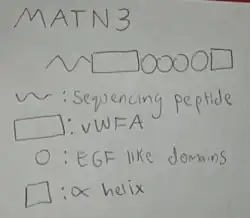 MATN3
: Sequencing peptide
: vWFA
: EGF like domains
: α helix